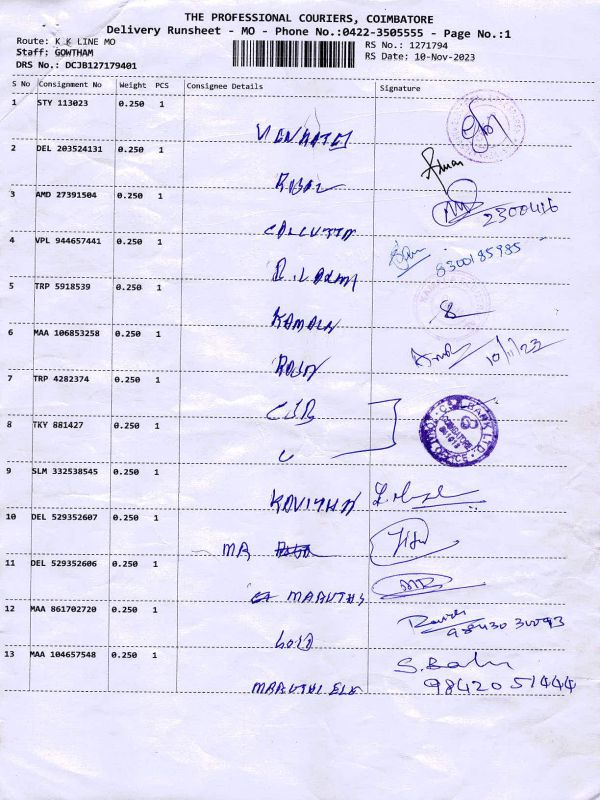 THE PROFESSIONAL COURIERS, COIMBATORE
Delivery Runsheet - MO - Phone No.:0422-3505555 - Page No.:1
Route: K K LINE MO
RS No.: 1271794
Staff: GOWTHAM
RS Date: 10-Nov-2023
DRS No.: DCJB127179401
S No Consignment No Weight PCS Consignee Details Signature
1 STY 113023 0.250 1
2 DEL 203524131 0.250 1
3 AMD 27391504 0.250 1
CALCUTTA
4 VPL 944657441 0.250 1
8300185985
5 TRP 5918539 0.250 1
KAMALA
6 MAA 106853258 0.250 1
10/11/23
7 TRP 4282374 0.250 1
8 TKY 881427 0.250 1
9 SLM 332538545 0.250 1
KAVITHA
10 DEL 529352607 0.250 1
MR
11 DEL 529352606 0.250 1
12 MAA 861702720 0.250 1
98430 30093
GOLD
13 MAA 104657548 0.250 1
S. Babu
98420 51444
MARUTHI ELE